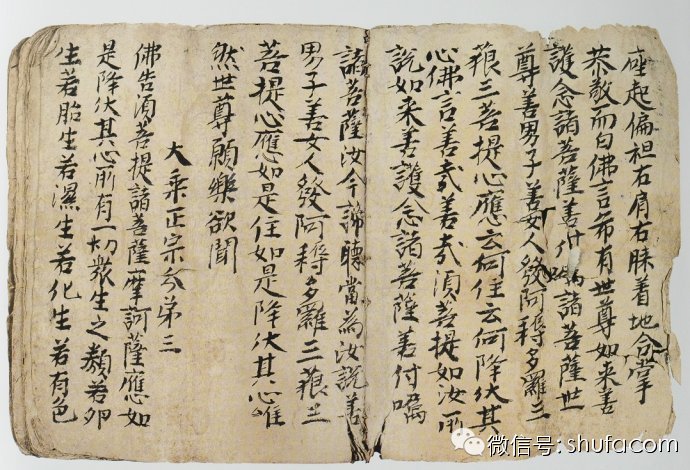 座起偏袒右肩右膝着地合掌
恭敬而白佛言希有世尊如来善
護念諸菩薩善付嘱諸菩薩世
尊善男子善女人發阿耨多羅三
藐三菩提心應云何住云何降伏其
心佛言善哉善哉須菩提如汝所
說如来善護念諸菩薩善付囑
諸菩薩汝今諦聽當為汝說善
男子善女人發阿耨多羅三藐三
菩提心應如是住如是降伏其心唯
然世尊願樂欲聞
大乘正宗分第三
佛告須菩提諸菩薩摩訶薩應如
是降伏其心所有一切衆生之類若卵
生若胎生若濕生若化生若有色
微信号: shufacom